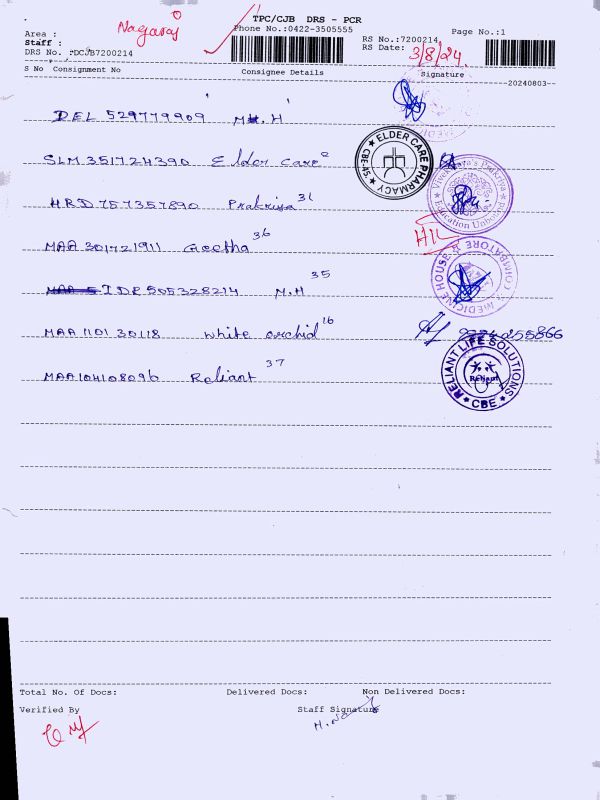 TPC/CJB DRS - PCR
Nagaraj
Area :
Phone No.:0422-3505555
Page No.:1
Staff :
RS No.:7200214
DRS No. :DCJB7200214
RS Date: 3/8/24
S No Consignment No Consignee Details Signature
20240803
DEL 529779909 M. H
SLM 351724390 Elder Care
ELDER CARE PHARMACY
HRD 757357890 Prakriya 31
Education Unbound
MAA 301721911 Geetha 36
IDR 505328214 M.H 35
MEDICINE HOUSE COIMBATORE
MAA 110130118 white orchid 16
MAA104108096 Reliant 37
RELIANT LIFE SOLUTIONS
Reliant
CBE
Total No. Of Docs: Delivered Docs: Non Delivered Docs:
Verified By Staff Signature